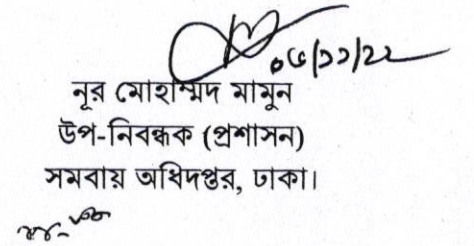 ০৬/১১/২২
নূর মোহাম্মদ মামুন
উপ-নিবন্ধক (প্রশাসন)
সমবায় অধিদপ্তর, ঢাকা।